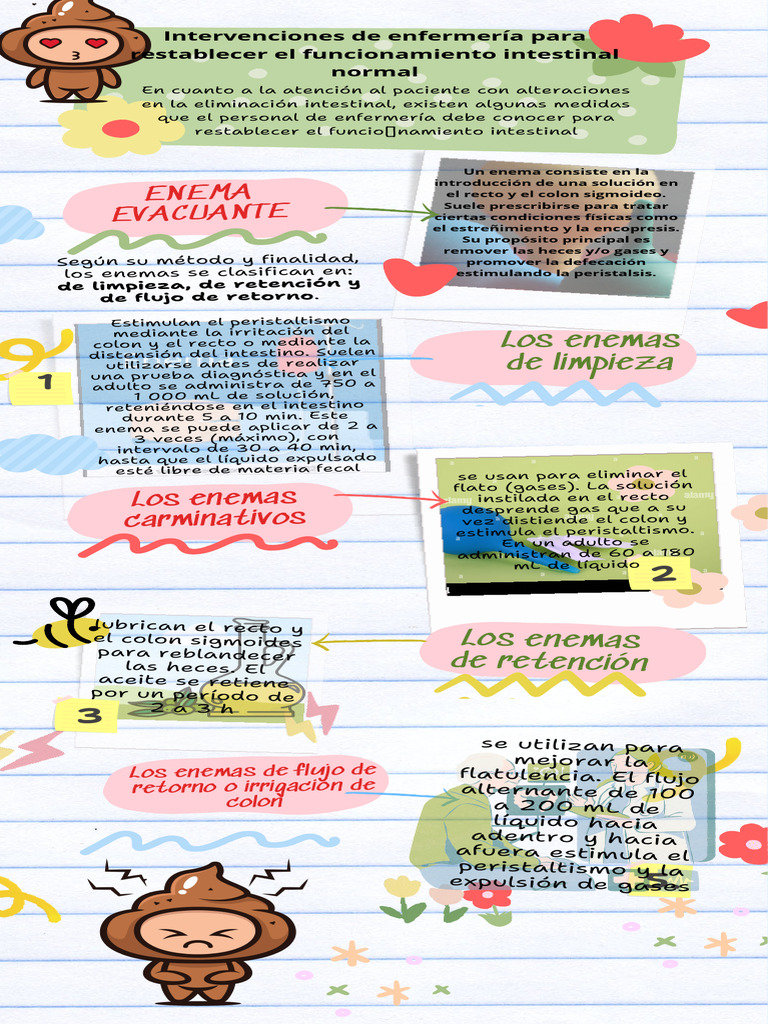 Intervenciones de enfermería para
restablecer el funcionamiento intestinal
normal
En cuanto a la atención al paciente con alteraciones
en la eliminación intestinal, existen algunas medidas
que el personal de enfermería debe conocer para
restablecer el funcio▯namiento intestinal
ENEMA
EVACUANTE
Un enema consiste en la
introducción de una solución en
el recto y el colon sigmoideo.
Suele prescribirse para tratar
ciertas condiciones físicas como
el estreñimiento y la encopresis.
Su propósito principal es
remover las heces y/o gases y
promover la defecación
estimulando la peristalsis.
Según su método y finalidad,
los enemas se clasifican en:
de limpieza, de retención y
de flujo de retorno.
Los enemas
de limpieza
1
Estimulan el peristaltismo
mediante la irritación del
colon y el recto o mediante la
distensión del intestino. Suelen
utilizarse antes de realizar
una prueba diagnóstica y en el
adulto se administra de 750 a
1 000 mL de solución,
reteniéndose en el intestino
durante 5 a 10 min. Este
enema se puede aplicar de 2 a
3 veces (máximo), con
intervalo de 30 a 40 min,
hasta que el líquido expulsado
esté libre de materia fecal
Los enemas
carminativos
se usan para eliminar el
flato (gases). La solución
instilada en el recto
desprende gas que a su
vez distiende el colon y
estimula el peristaltismo.
En un adulto se
administran de 60 a 180
mL de líquido
alamy
2
Los enemas
de retención
lubrican el recto y
el colon sigmoides
para reblandecer
las heces. El
aceite se retiene
por un período de
2 a 3 h
3
Los enemas de flujo de
retorno o irrigación de
colon
se utilizan para
mejorar la
flatulencia. El flujo
alternante de 100
a 200 mL de
líquido hacia
adentro y hacia
afuera estimula el
peristaltismo y la
expulsión de gases